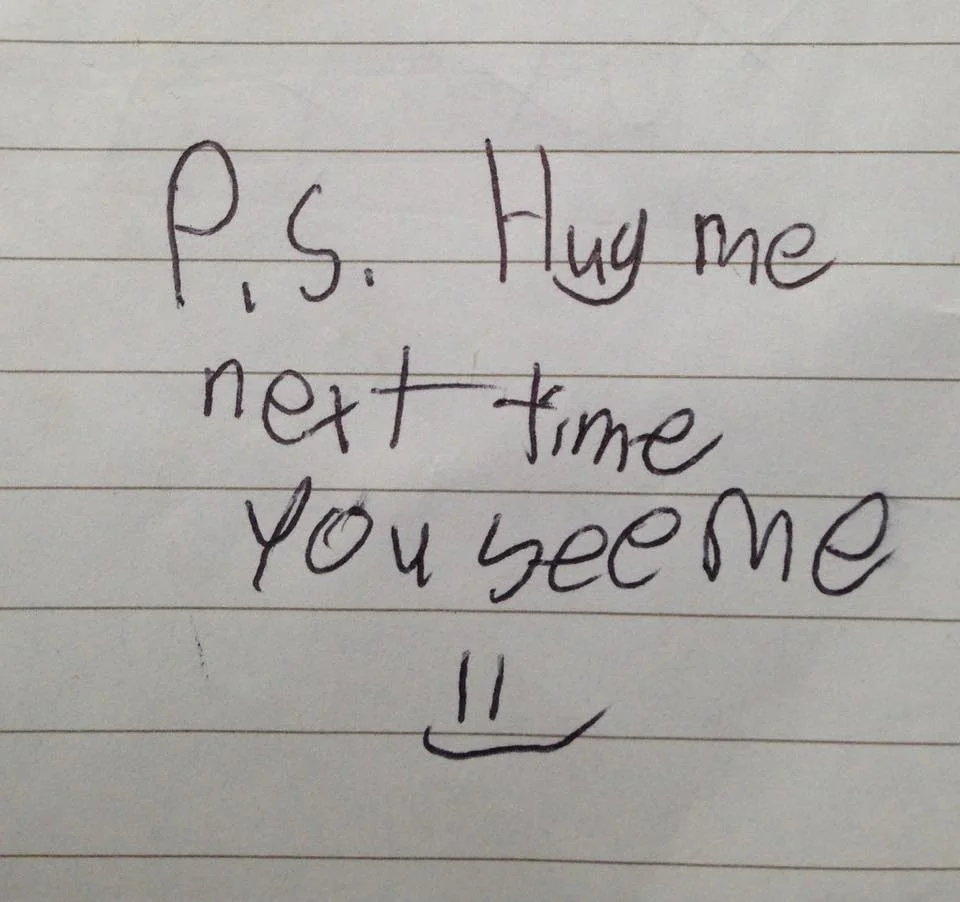 P.S. Hug me
next time
you see me